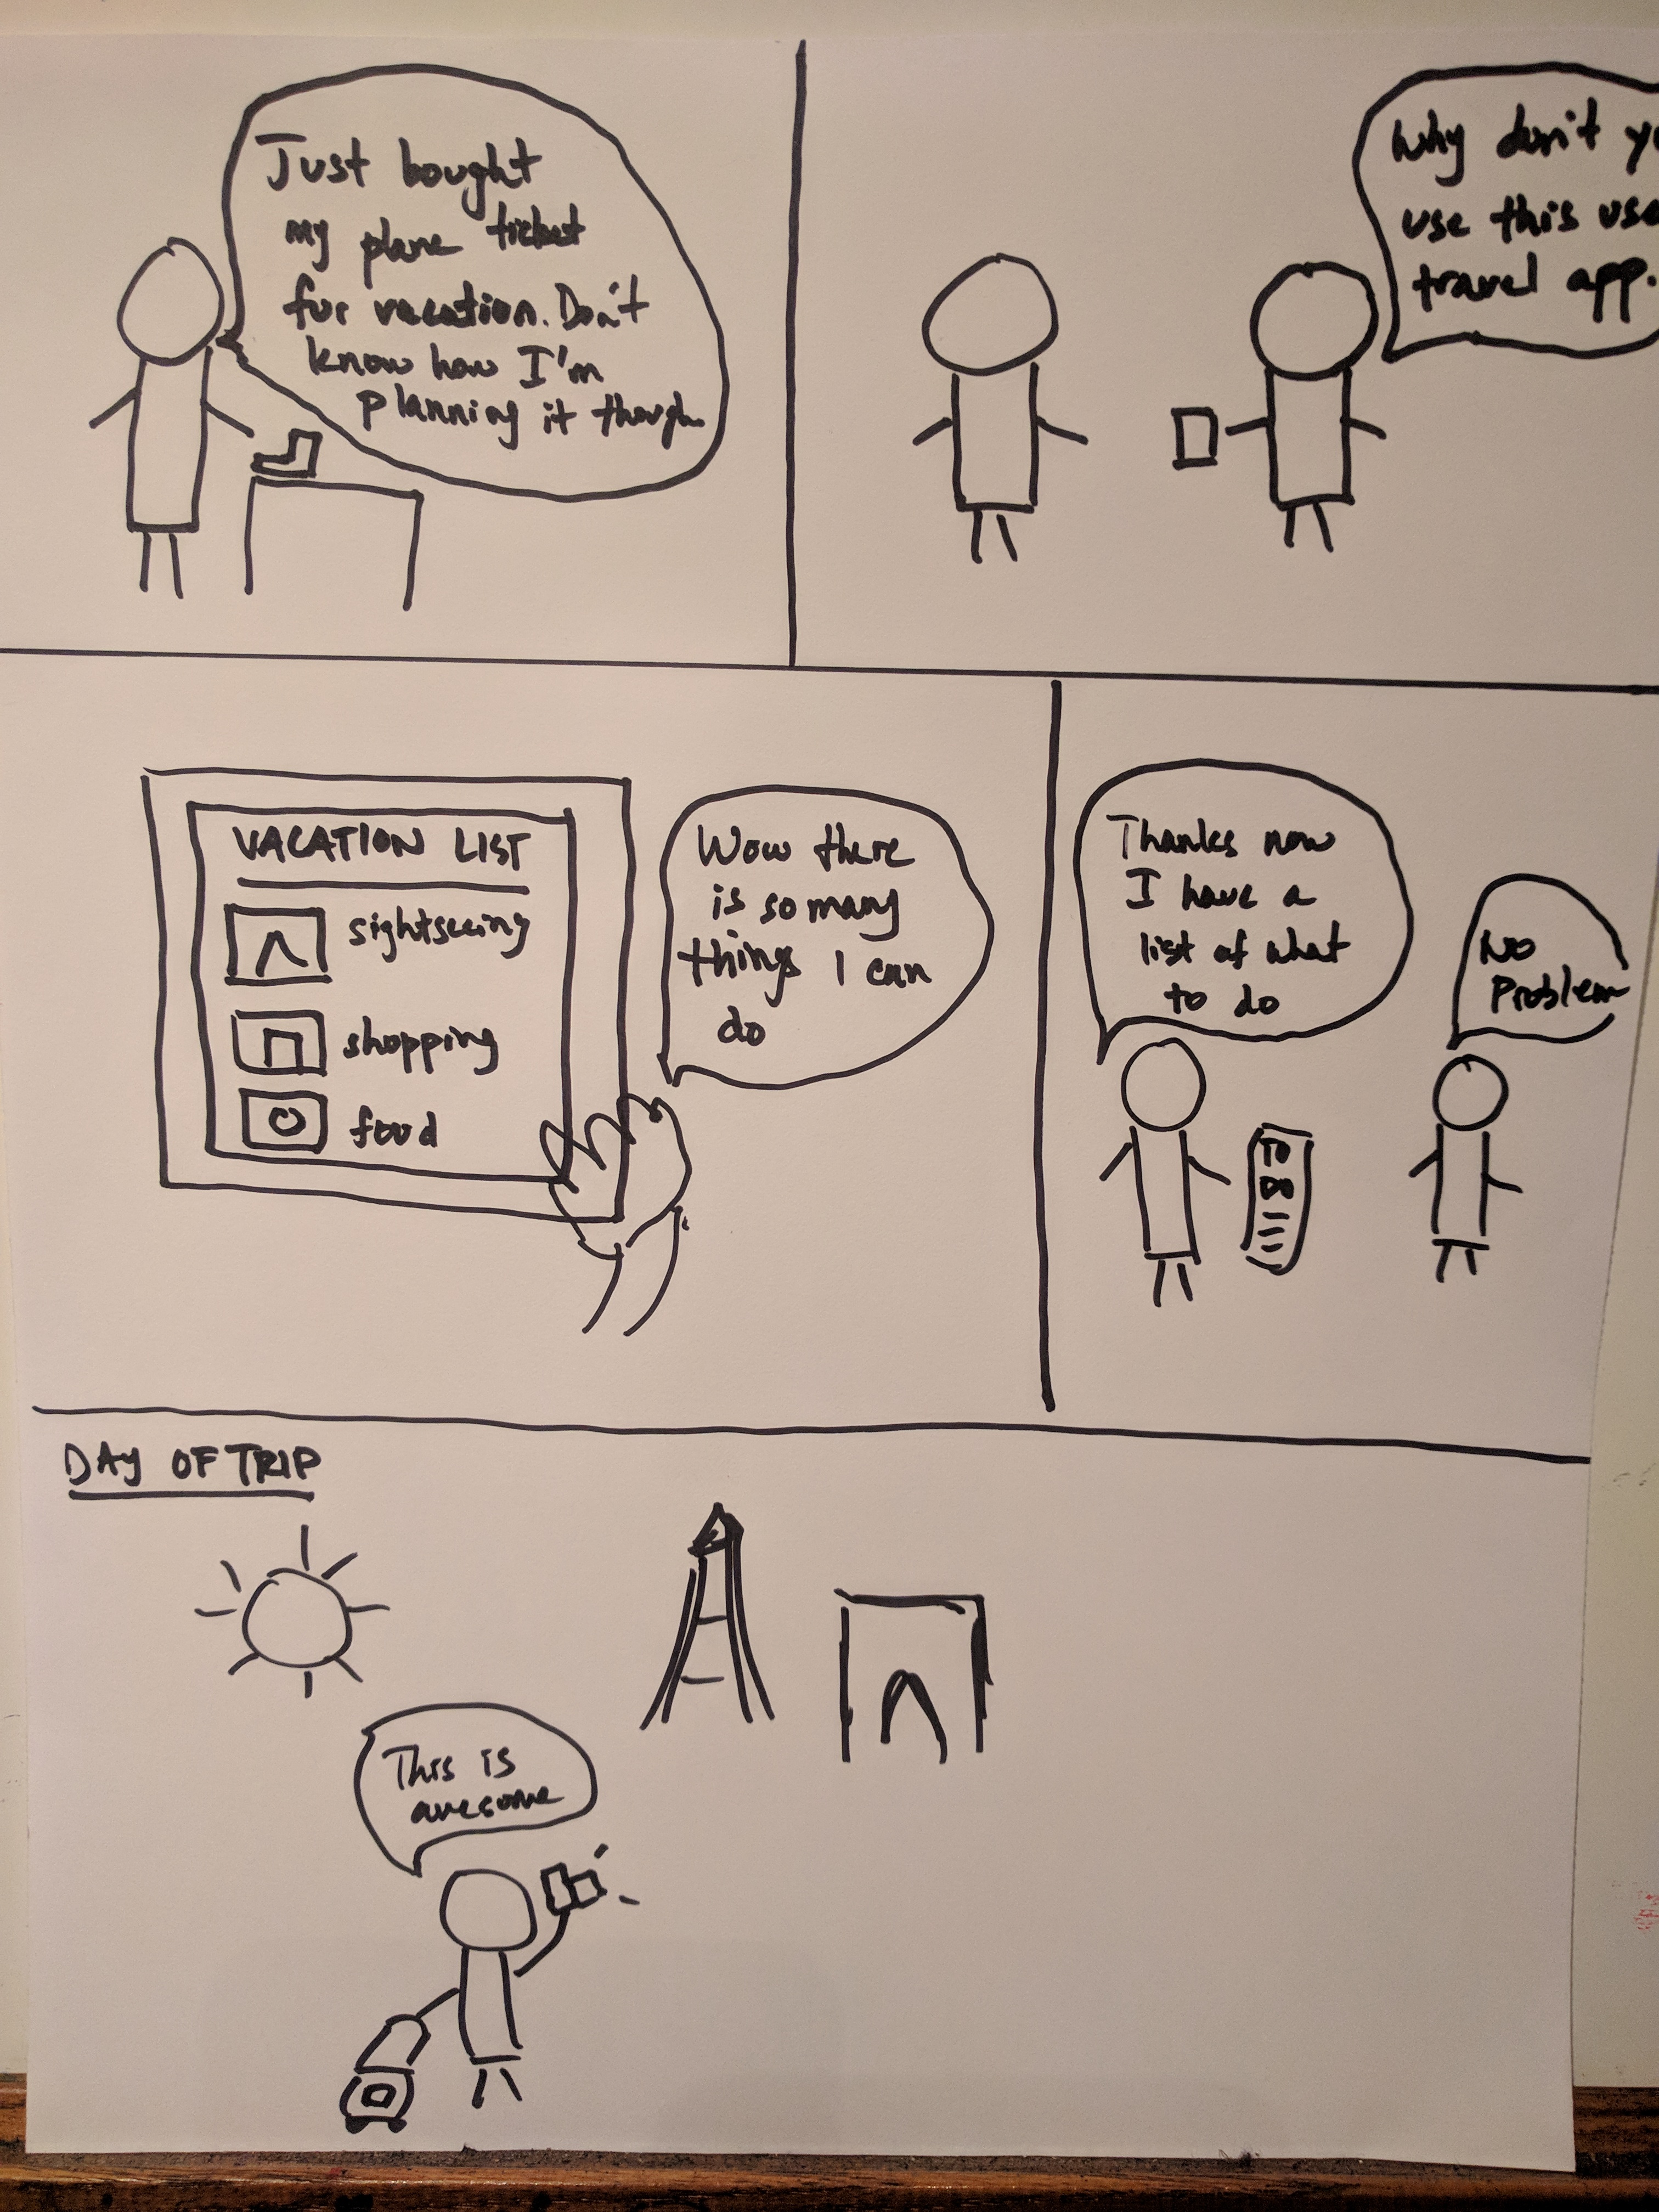 Just bought
my plane ticket
for vacation. Don't
know how I'm
planning it though.
Why don't
use this
travel app.
VACATION LIST
sightseeing
shopping
food
Wow there
is so many
things I can
do
Thanks now
I have a
list of what
to do
No
Problem
TO
DO
DAY OF TRIP
This is
awesome